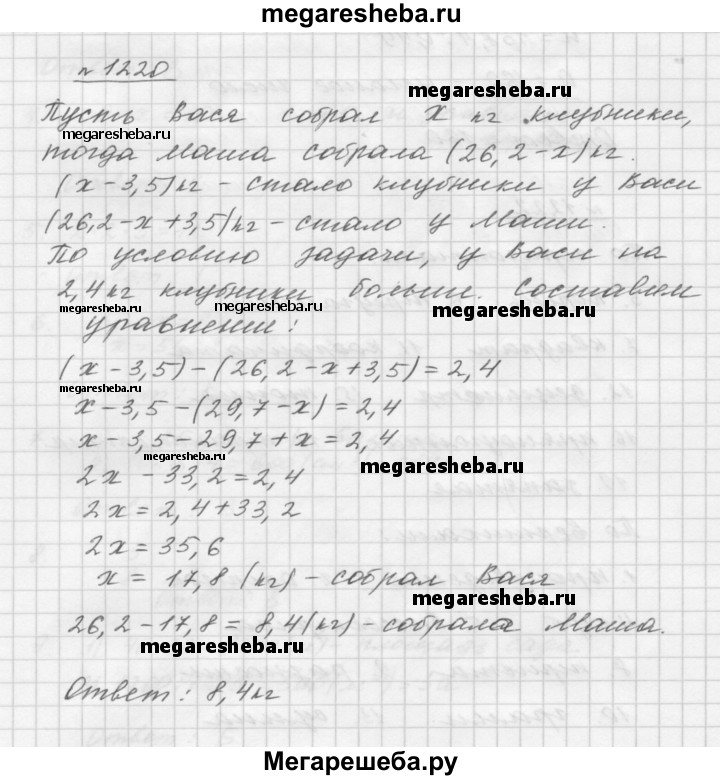 megaresheba.ru
№ 1220
megaresheba.ru
Пусть Вася собрал x кг клубники,
megaresheba.ru
тогда Маша собрала (26,2-x) кг.
megaresheba.ru
(x-3,5) кг - стало клубники у Васи
(26,2-x+3,5) кг - стало у Маши.
megaresheba.ru
По условию задачи, у Васи на
2,4 кг клубники больше. Составим
megaresheba.ru
megaresheba.ru
megaresheba.ru
уравнение:
(x-3,5)-(26,2-x+3,5)=2,4
megaresheba.ru
x-3,5-(29,7-x)=2,4
x-3,5-29,7+x=2,4
megaresheba.ru
megaresheba.ru
2x-33,2=2,4
2x=2,4+33,2
2x=35,6
x=17,8 (кг) - собрал Вася
megaresheba.ru
26,2-17,8=8,4(кг)-собрала Маша.
megaresheba.ru
Ответ: 8,4кг
Мегарешеба.ру